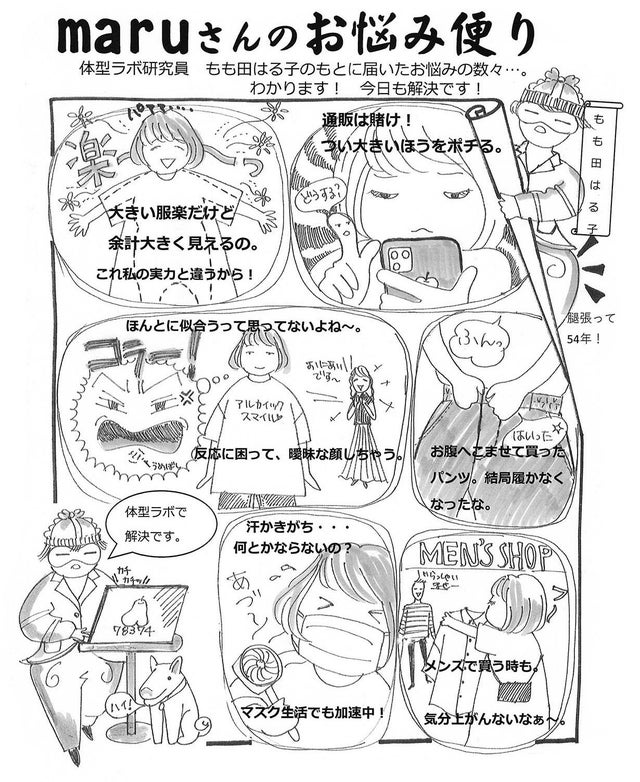 maruさんのお悩み便り
体型ラボ研究員　もも田はる子のもとに届いたお悩みの数々…。
わかります！　今日も解決です！
もも田はる子
腿張って
54年！
パアァ…
楽〜っ
大きい服楽だけど
余計大きく見えるの。
これ私の実力と違うから！
通販は賭け！
つい大きいほうをポチる。
どうする？
ほんとに似合うって思ってないよね〜。
コラー！
アルカイック
スマイル
おにあい
です〜
反応に困って、曖昧な顔しちゃう。
ふんっ
はいった
お腹へこませて買った
パンツ。結局履かなく
なったな。
体型ラボで
解決です。
カチ
カチッ
78374
ハイ！
汗かきがち・・・
何とかならないの？
あづ〜
マスク生活でも加速中！
MEN'S SHOP
いらっしゃい
ませー
メンズで買う時も。
気分上がんないなぁ〜。